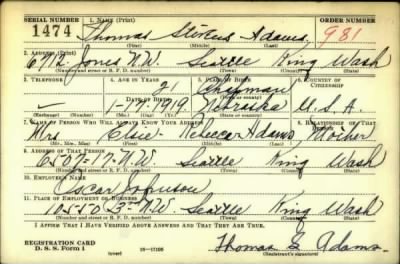 SERIAL NUMBER 1. NAME (Print) ORDER NUMBER
1474 Thomas Stevens Adams 981
(First) (Middle) (Last)
2. ADDRESS (Print)
Jones N.W. Seattle King Wash
(Number and street or R. F. D. number) (Town) (County) (State)
3. TELEPHONE 4. AGE IN YEARS 5. PLACE OF BIRTH 6. COUNTRY OF CITIZENSHIP
21
DATE OF BIRTH
1919 Nebraska U.S.A.
7. NAME OF PERSON WHO WILL ALWAYS KNOW YOUR ADDRESS 8. RELATIONSHIP OF THAT PERSON
Mrs Elsie Rebecca Adams, Mother
(Mr., Mrs., Miss) (First) (Middle) (Last)
9. ADDRESS OF THAT PERSON
6507-17-N.W. Seattle King Wash
(Number and street or R. F. D. number) (Town) (County) (State)
10. EMPLOYER'S NAME
Oscar Johnson
11. PLACE OF EMPLOYMENT OR BUSINESS
N.W. Seattle King Wash
(Number and street or R. F. D. number) (Town) (County) (State)
I AFFIRM THAT I HAVE VERIFIED ABOVE ANSWERS AND THAT THEY ARE TRUE.
REGISTRATION CARD
D. S. S. Form 1 Thomas S Adams
(Registrant's signature)